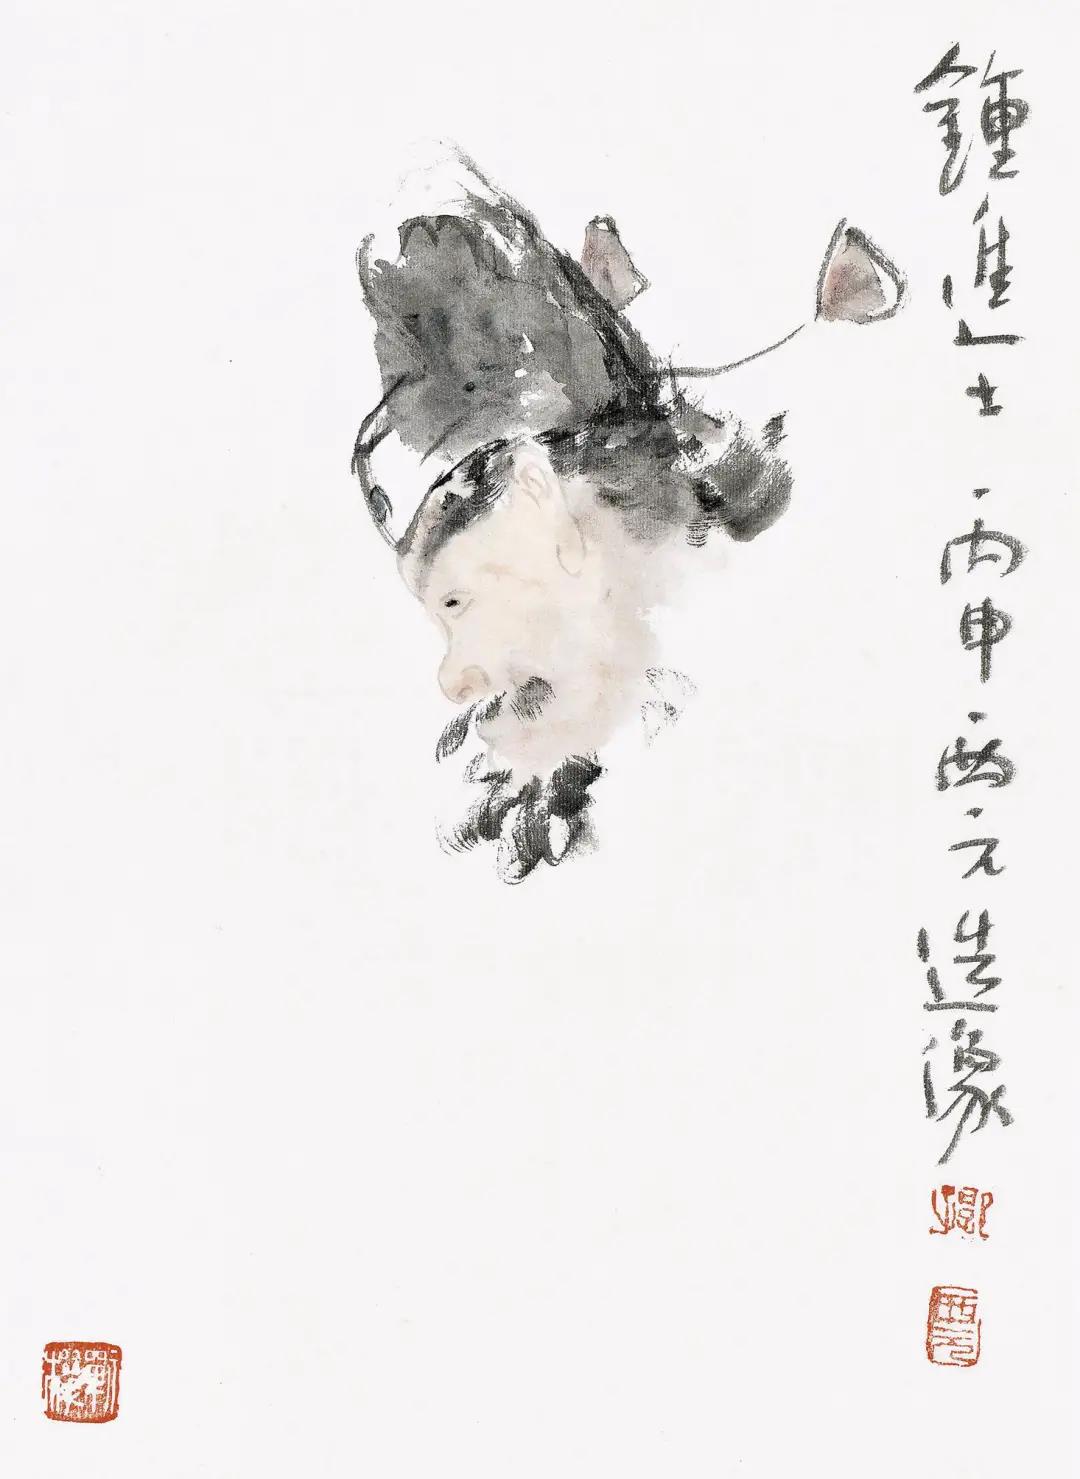 鍾進士丙申西元造像
西元